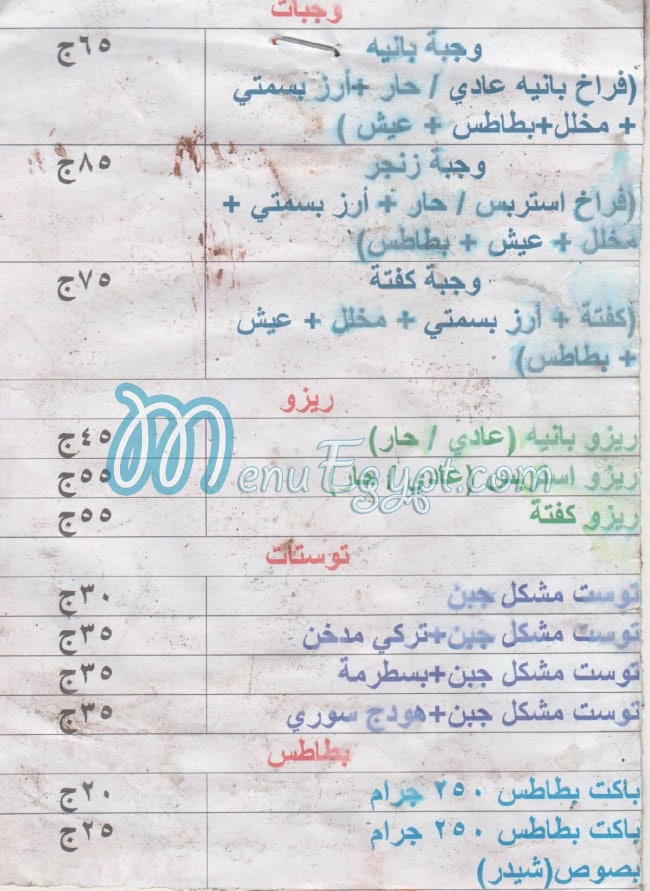 وجبات
وجبة بانيه ٦٥ج
(فراخ بانيه عادي / حار +أرز بسمتي
+ مخلل+بطاطس + عيش )
وجبة زنجر ٨٥ج
(فراخ استربس / حار + أرز بسمتي +
مخلل + عيش + بطاطس)
وجبة كفتة ٧٥ج
(كفتة + أرز بسمتي + مخلل + عيش
+ بطاطس)
ريزو
ريزو بانيه (عادي / حار) ٤٥ج
ريزو استربس (عادي / حار) ٥٥ج
MenuEgypt.com
ريزو كفتة ٥٥ج
توستات
توست مشكل جبن ٣٠ج
توست مشكل جبن+تركي مدخن ٣٥ج
توست مشكل جبن+بسطرمة ٣٥ج
توست مشكل جبن+هودج سوري ٣٥ج
بطاطس
باكت بطاطس ٢٥٠ جرام ٢٠ج
باكت بطاطس ٢٥٠ جرام ٢٥ج
بصوص(شيدر)